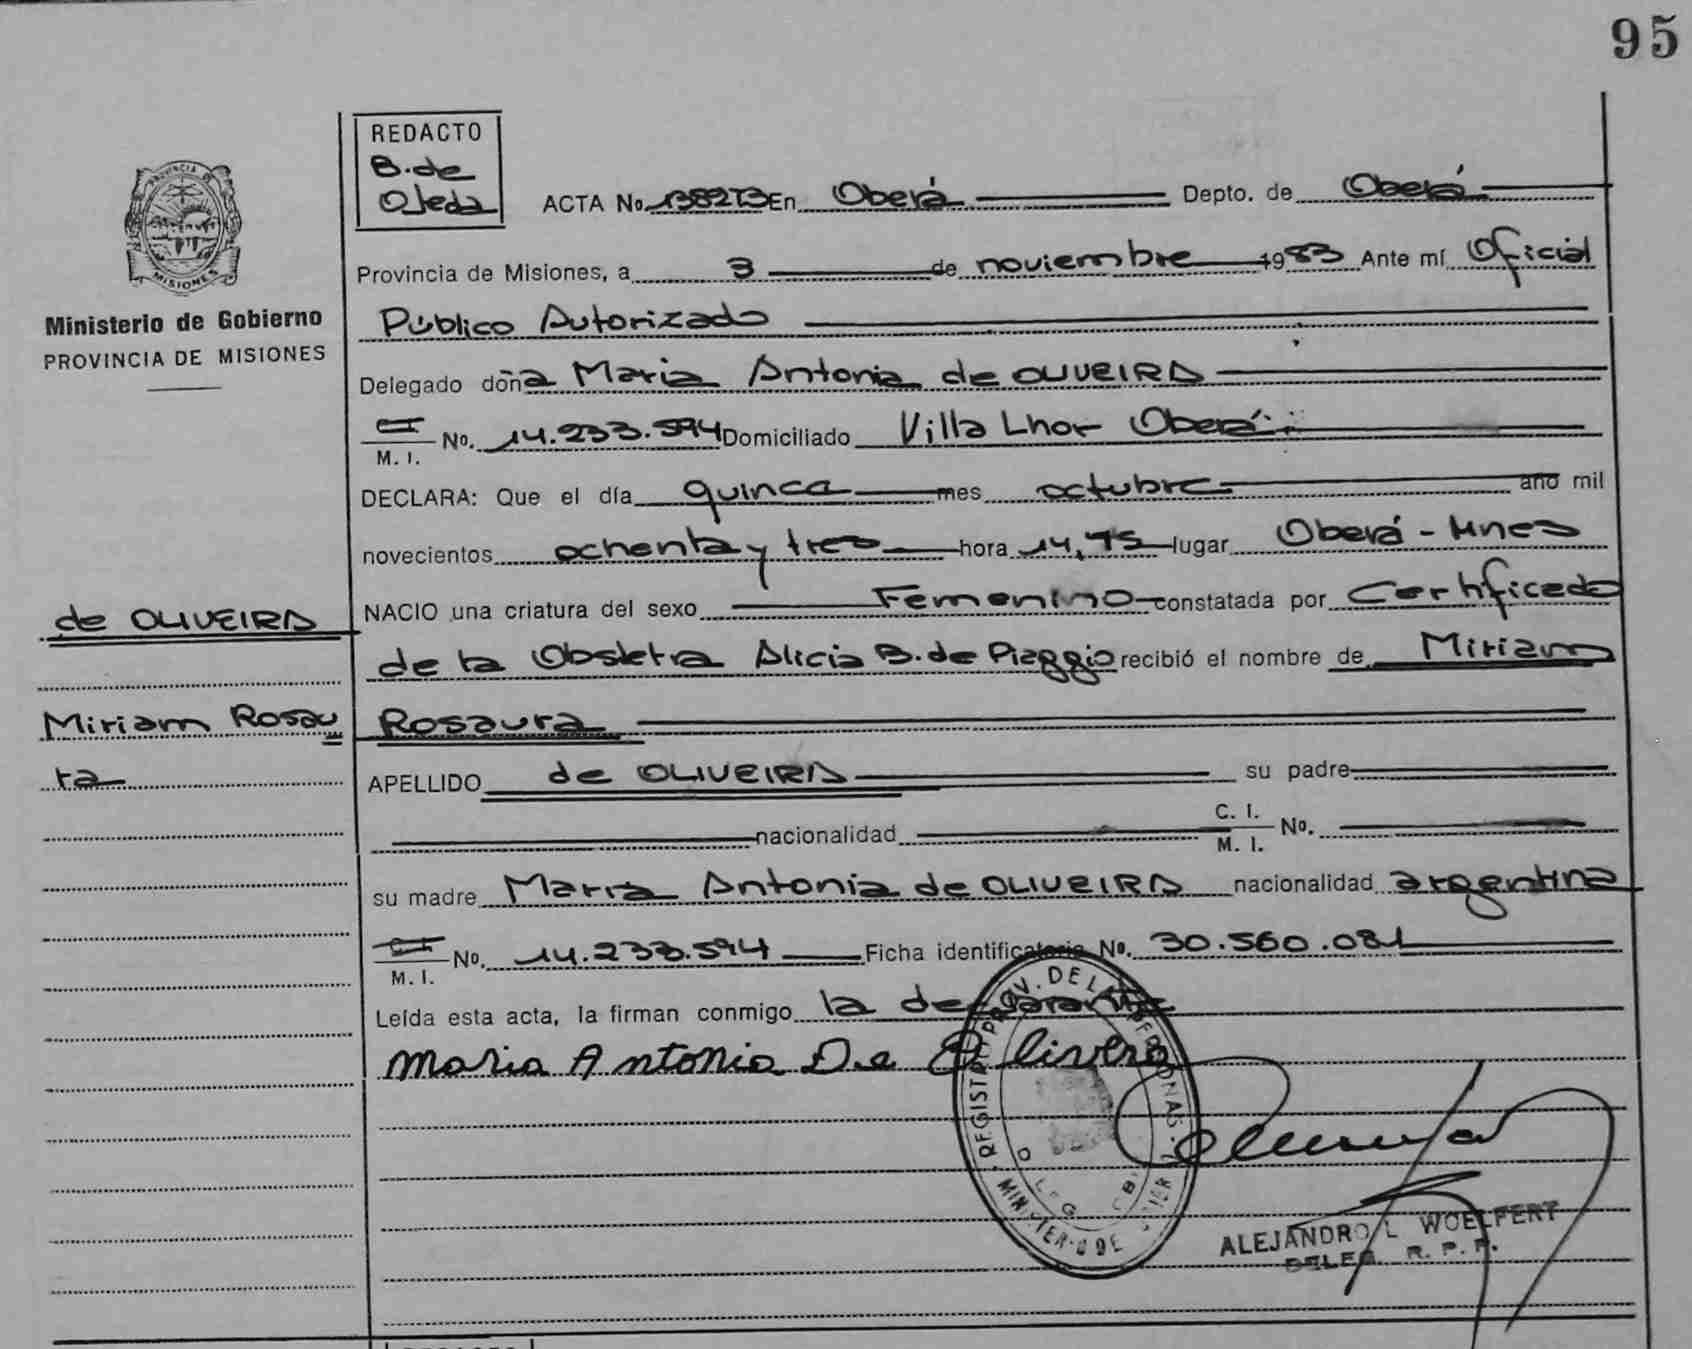 95
REDACTO
B. de
Ojeda
ACTA No. 138273 En Oberá Depto. de Oberá
PROVINCIA DE
MISIONES
Provincia de Misiones, a 3 de noviembre 1983 Ante mí Oficial
Ministerio de Gobierno
PROVINCIA DE MISIONES
Público Autorizado
Delegado doña Maria Antonia de OLIVEIRA
M. I. No. 14.233.594 Domiciliado Villa Lhor Oberá
DECLARA: Que el día quince mes octubre año mil
novecientos ochenta y tres hora 14,75 lugar Oberá - Mnes
de OLIVEIRA
NACIO una criatura del sexo Femenino constatada por Certificado
de la Obstetra Alicia B. de Piaggio recibió el nombre de Miriam
Miriam Rosau
ra
Rosaura
APELLIDO de OLIVEIRA su padre
nacionalidad C. I. M. I. No.
su madre Maria Antonia de OLIVEIRA nacionalidad argentina
M. I. No. 14.233.594 Ficha identificatoria No. 30.560.081
Leída esta acta, la firman conmigo la declarante
Maria Antonia De Olivera
ALEJANDRO L. WOELFERT
DELEG. R. P. P.